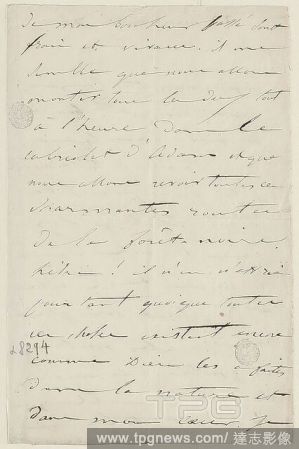 de mon bonheur passé tout
frais et vivace. il me
semble que nous allons
monter tous la dessus tout
à l'heure dans le
cabriolet d'Adam et que
nous allons revoir toutes ces
charmantes routes
de la forêt noire.
hélas ! il n'en est rien
pourtant quoique toutes
ces choses existent encore
28294
comme Dieu les a faites
dans la nature et
dans mon cœur je
TPG
www.tpgnews.com/達志影像